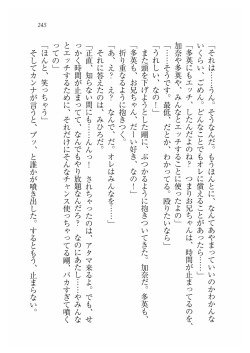 245
「それは……うん。そうなんだ。もうほんとに、なんてあやまっていいのかわかんな
いくらい、ごめん。どんなことでもオレに償えることがあったら……」
「多英にもエッチ、したんだよね？ つまりお兄ちゃんは、時間が止まってるのを、
加奈や多英や、みんなとエッチすることに使ったよの」
「……そうです。最低、だとか、わかってる。殴りたいなら」
「うれしい、なの」
また頭を下げようとした剛に、ぶつかるように抱きついてきた。加奈だ。多英も、
折り重なるように抱きつく。
「多英も、お兄ちゃん、だーい好き、なの！」
「あ、え？ え？ なんで、だ。オレはみんなを……」
それに答えたのは、みひろだ。
「正直、知らない間にも……んんっ！ されちゃったのは、アタマ来るよ。でも、せ
っかく時が止まってて、なんでもやり放題なんだって……そんなときに、あたしやみんな
とエッチするために、それだけにそんなチャンス使っちゃってる剛、バカすぎて嘆く
「ほんと、笑っちゃう」
そしてカンナが言うと、プッ、と誰かが噴き出した。するともう、止まらない。